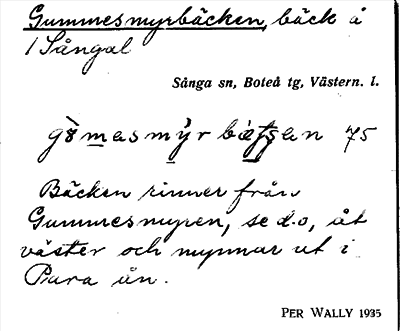 Gummesmyrbäcken, bäck å
/ Sångal
Sånga sn, Boteå tg, Västern. l.
75
Bäcken rinner från
Gummesmyren, se d.o, åt
väster och mynnar ut i
Para ån.
PER WALLY 1935